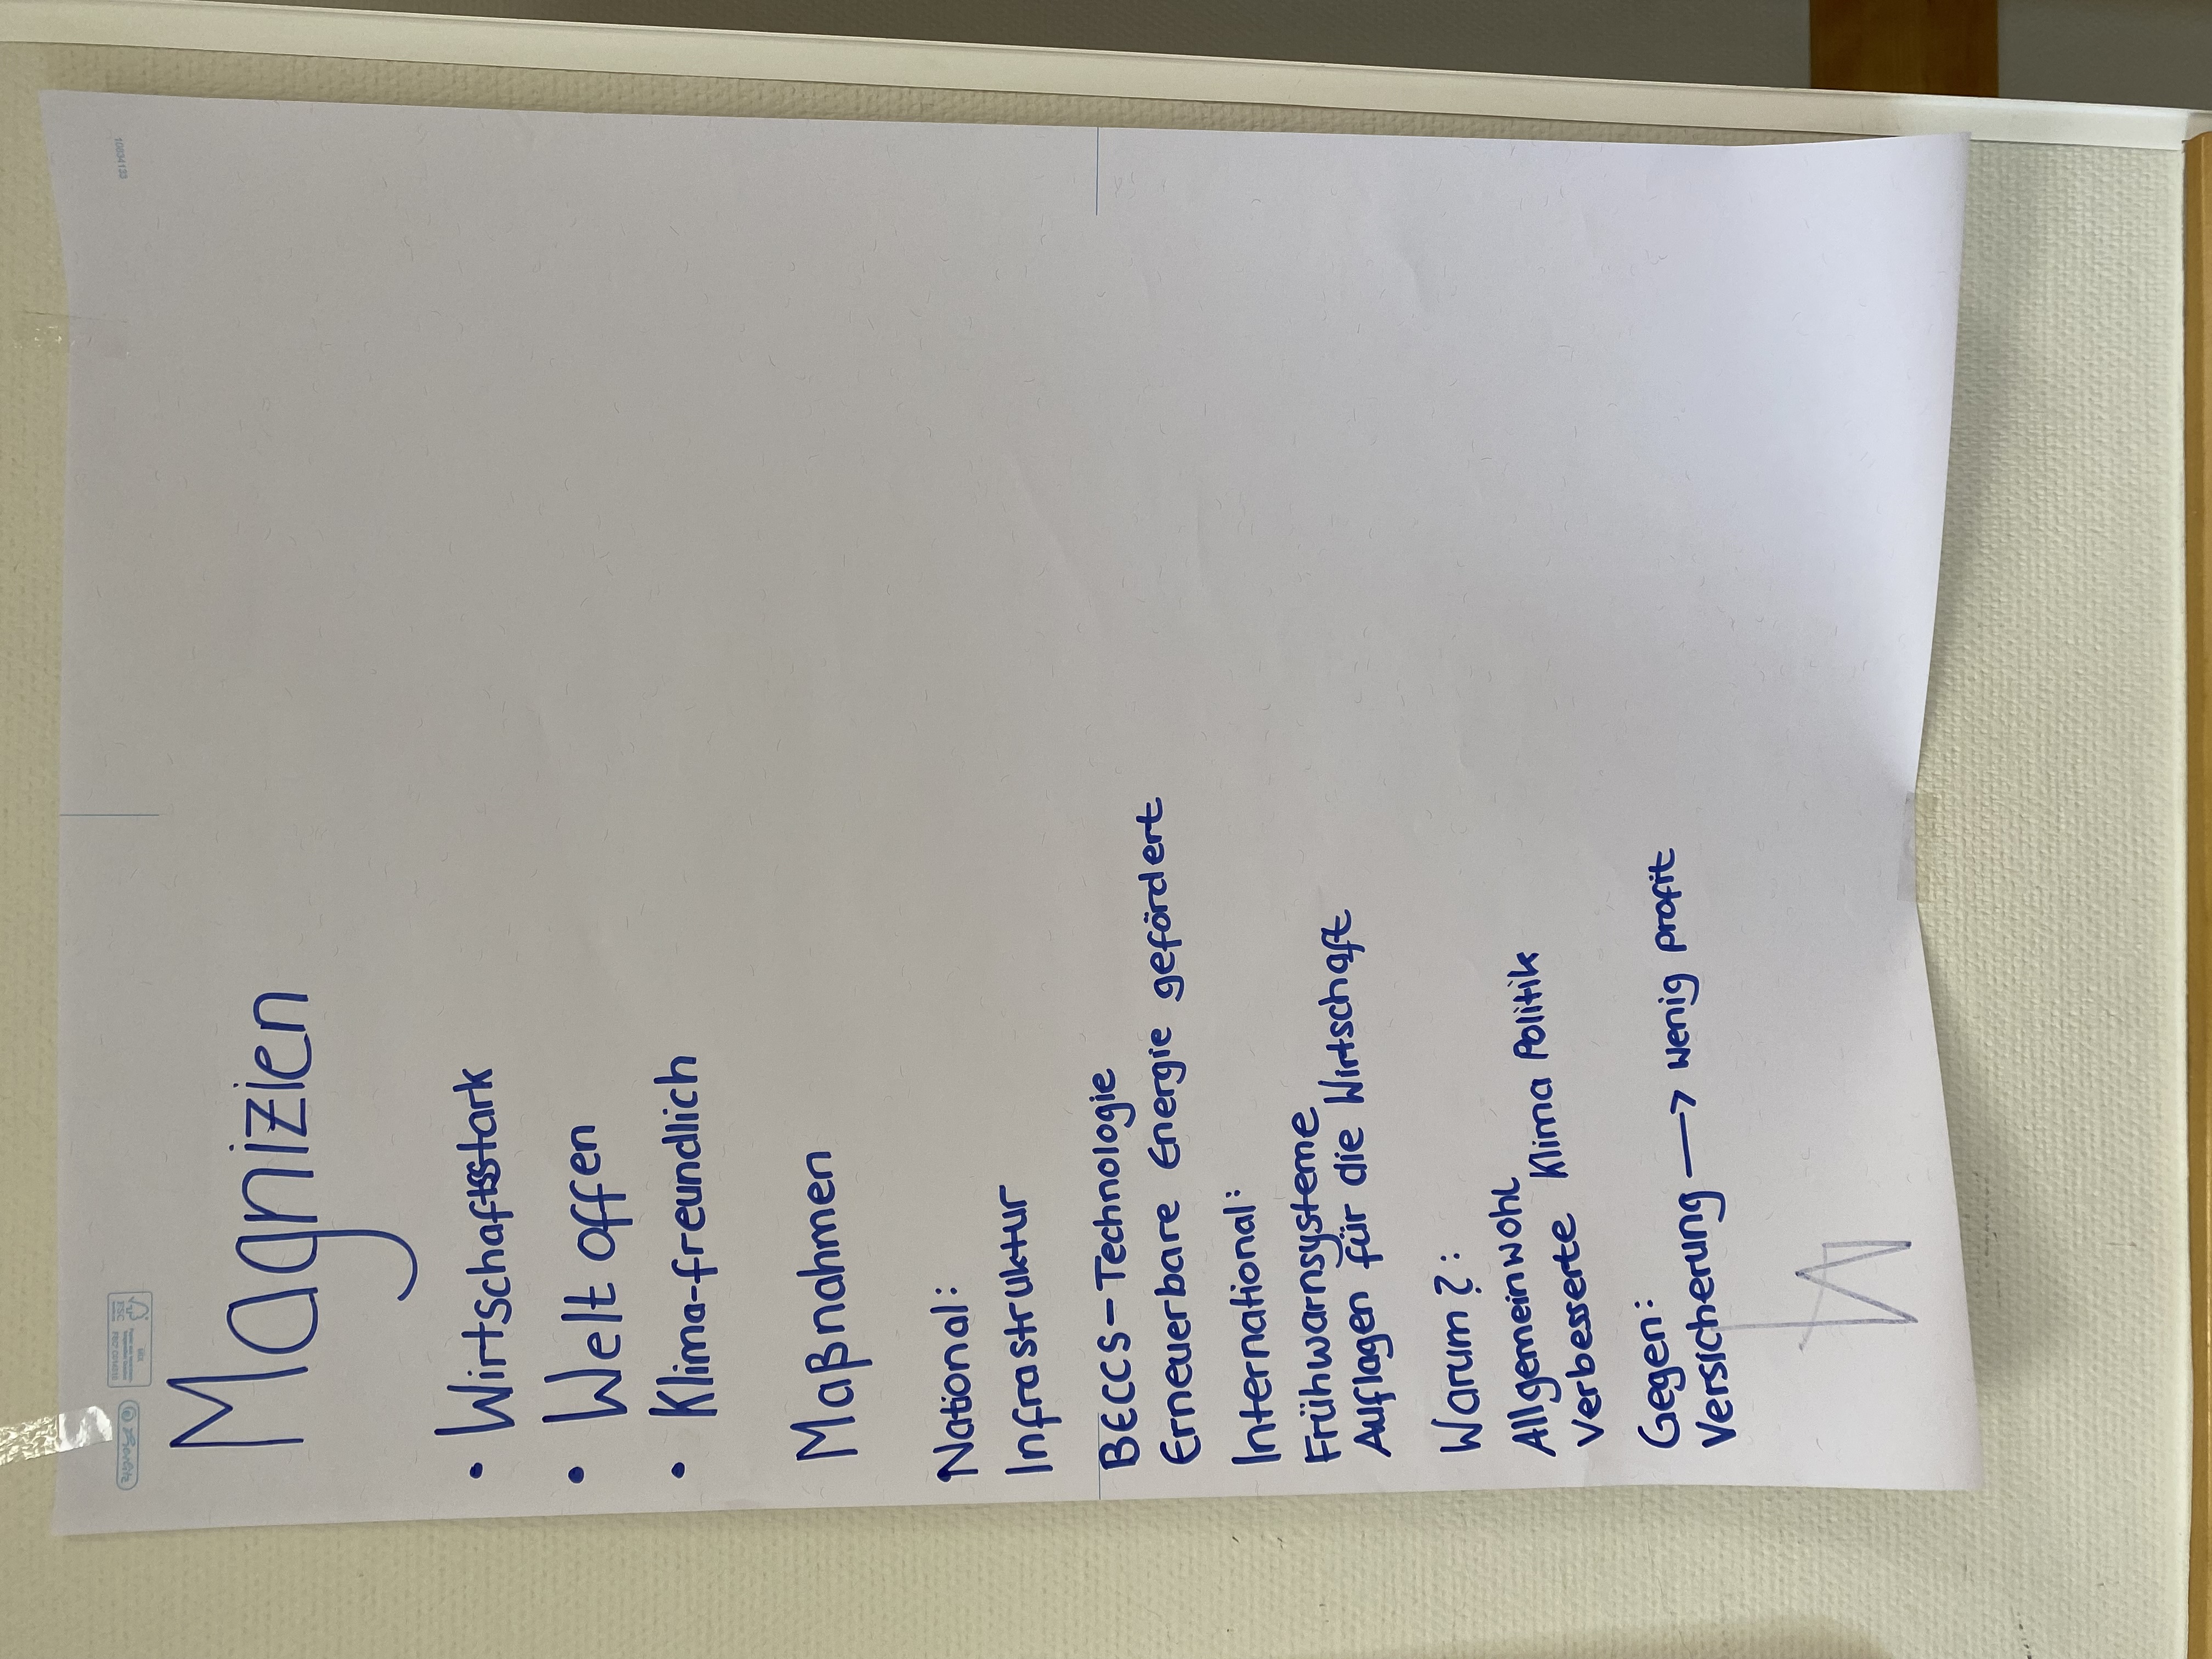 Magnizien
• Wirtschaftsstark
• Welt offen
• Klima-freundlich
Maßnahmen
National:
Infrastruktur
BECCS-Technologie
Erneuerbare Energie gefördert
International:
Frühwarnsysteme
Auflagen für die Wirtschaft
Warum?:
Allgemeinwohl
Verbesserte Klima Politik
Gegen:
Versicherung → wenig profit